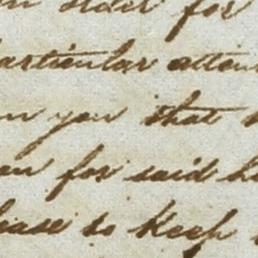 order for
particular atten
you that
for said
please to Keep